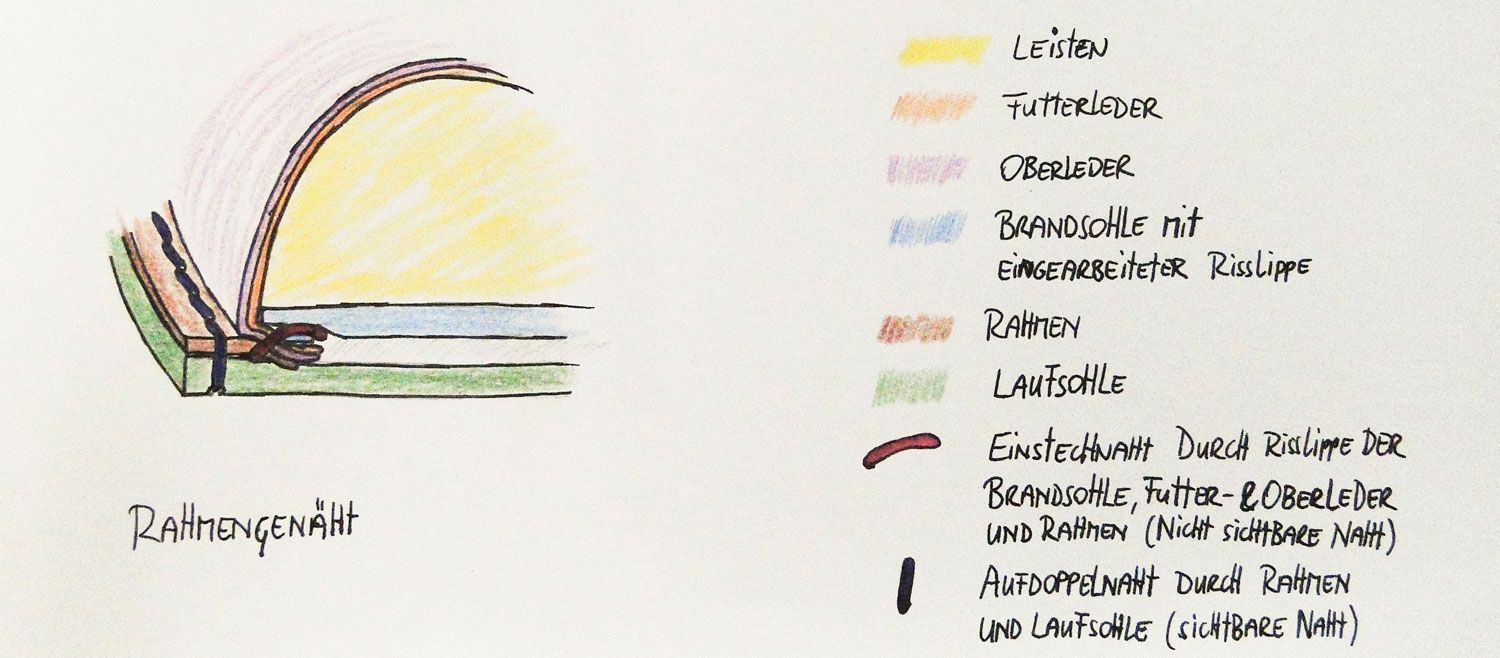 Leisten
Futterleder
Oberleder
Brandsohle mit
eingearbeiteter Risslippe
Rahmen
Laufsohle
Einstechnaht durch Risslippe der
Brandsohle, Futter- & Oberleder
und Rahmen (Nicht sichtbare Naht)
Aufdoppelnaht durch Rahmen
und Laufsohle (sichtbare Naht)
Rahmengenäht